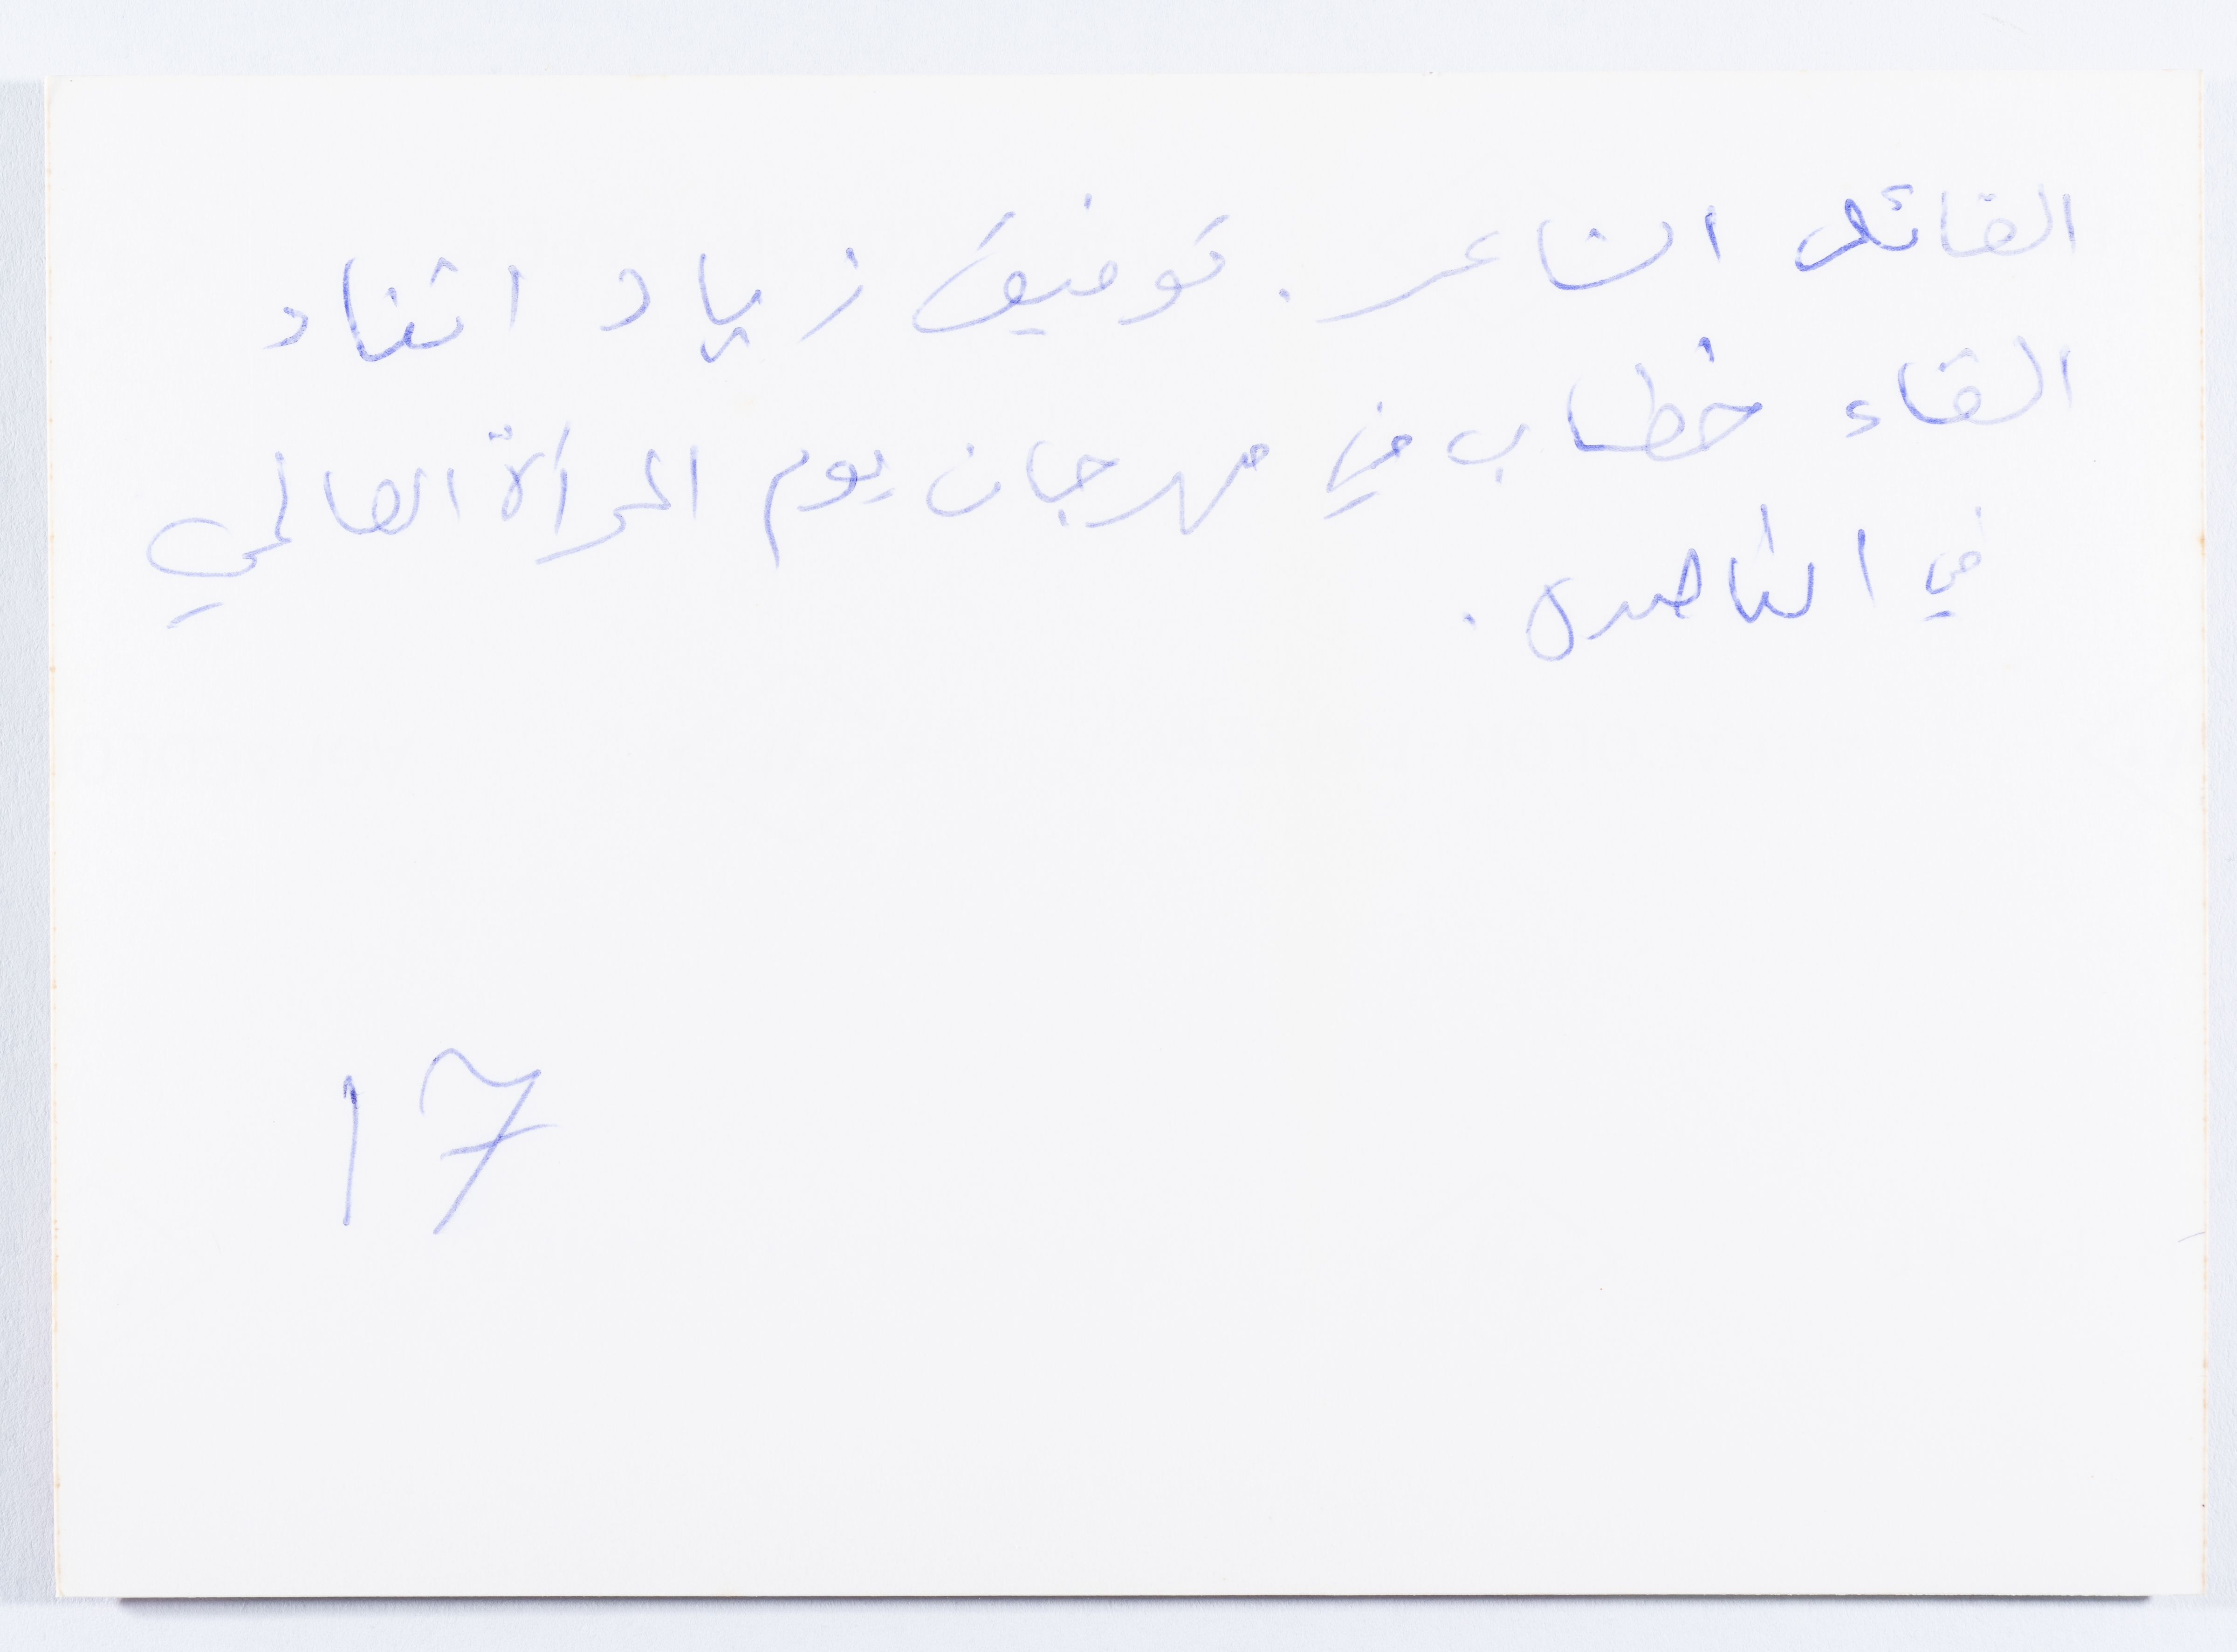 القائد الشاعر . توفيق زياد اثناء
القاء خطاب في مهرجان يوم المرأة العالمي
في الناصرة .
17